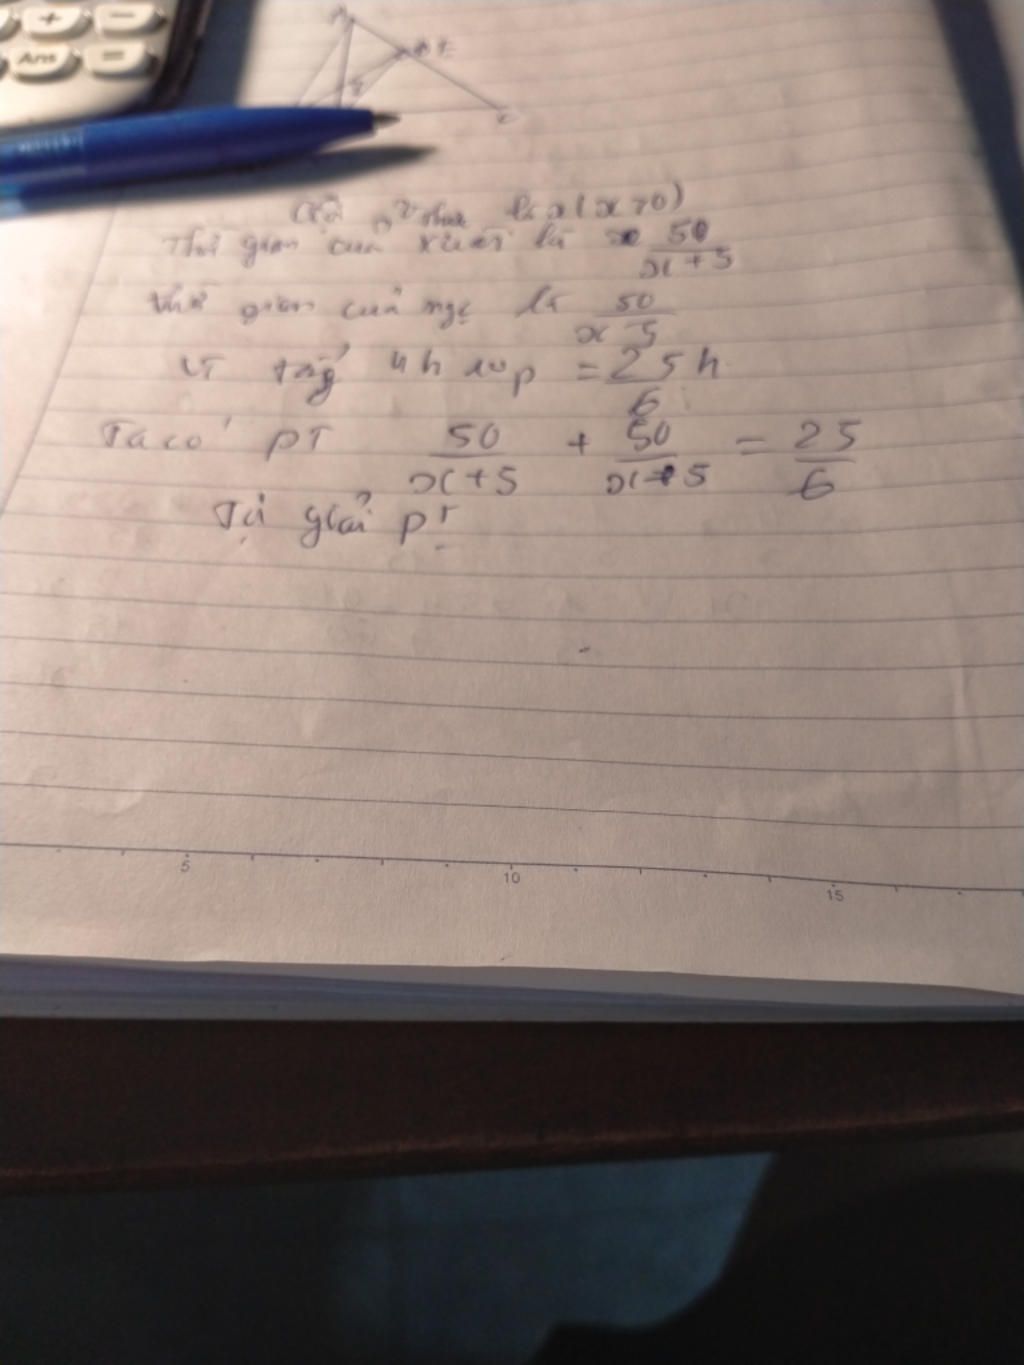 + -
Ans =
E
c
là x (x > 0)
Thời gian của xuôi là 50/x+5
thời gian của ngc là 50/x 5
Vì tổg 4h 10p = 25/6 h
Ta có PT 50/x+5 + 50/x-5 = 25/6
Tự giải pt
5 10 15